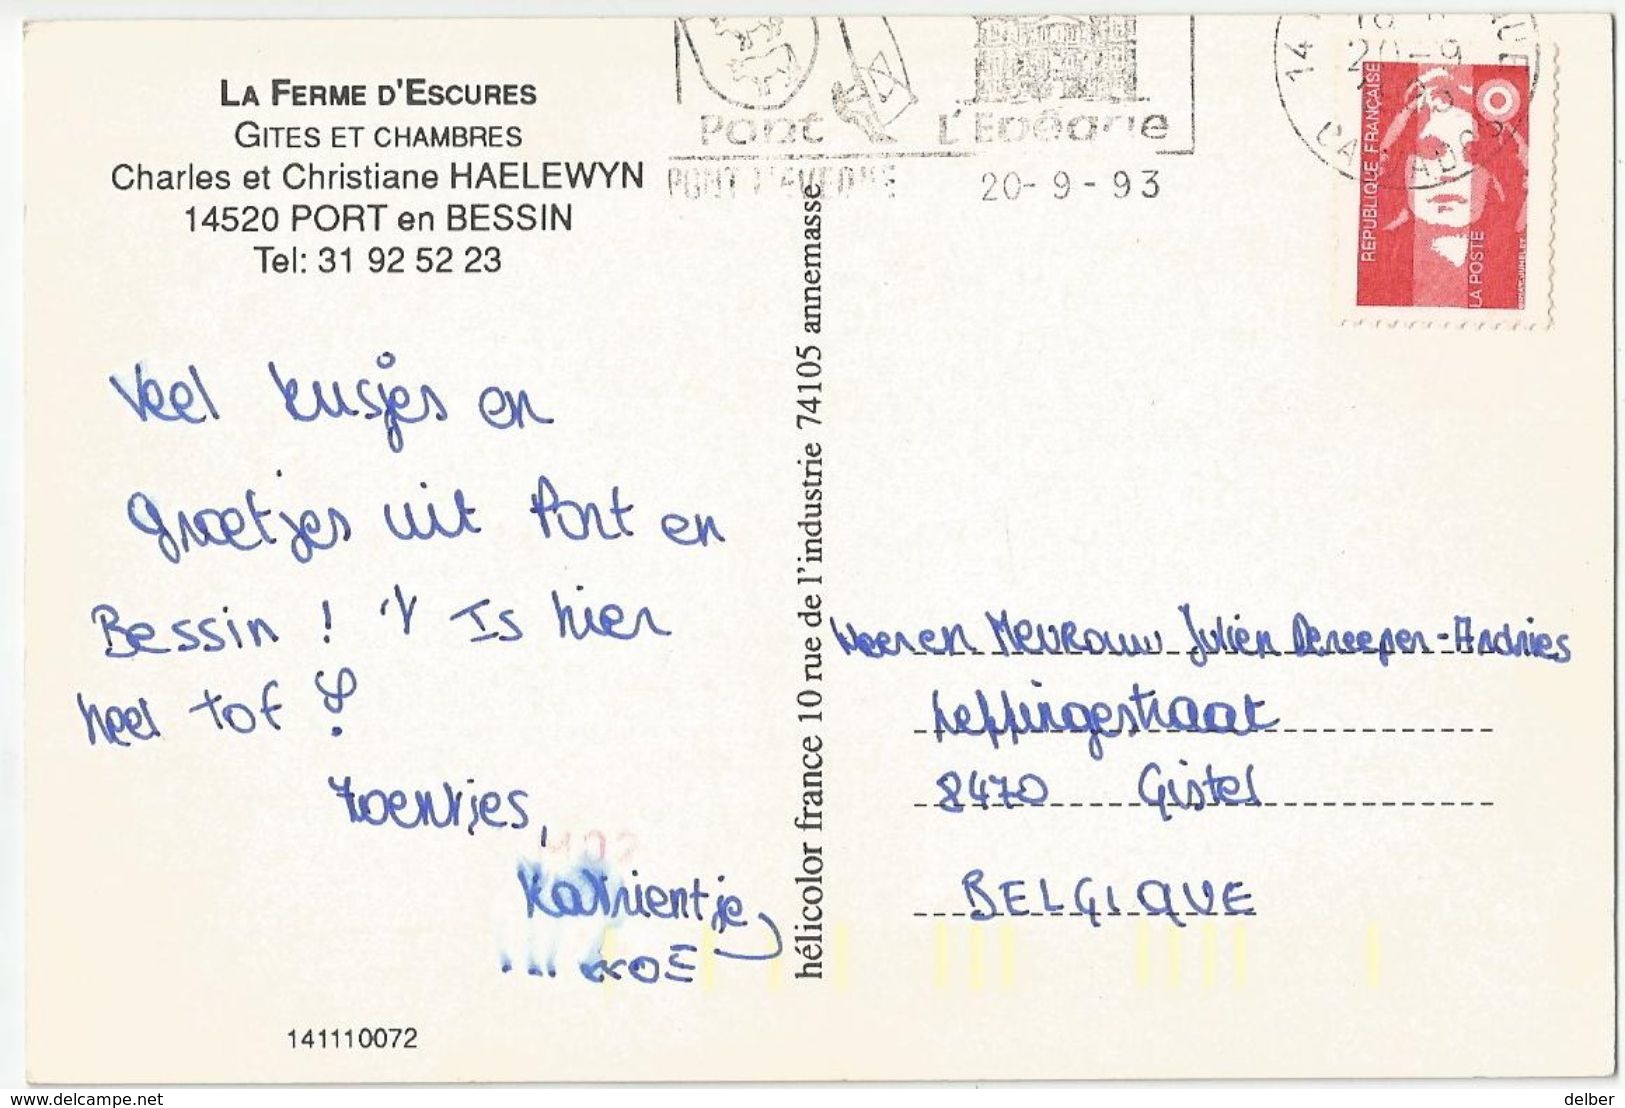 LA FERME D'ESCURES
GITES ET CHAMBRES
Charles et Christiane HAELEWYN
14520 PORT en BESSIN
Tel: 31 92 52 23
Pont L'Evêque
PONT L'EVEQUE 20-9-93
14
20-9
CALVADOS
REPUBLIQUE FRANÇAISE
LA POSTE
Veel kusjes en
Groetjes uit Port en
Bessin ! 't Is hier
heel tof !
Zoentjes,
Katrientje
hélicolor france 10 rue de l'industrie 74105 annemasse
Heer en Mevrouw Julien Dereeper-Andries
Leffingestraat
8470 Gistel
BELGIQUE
141110072
delcampe.net
delber